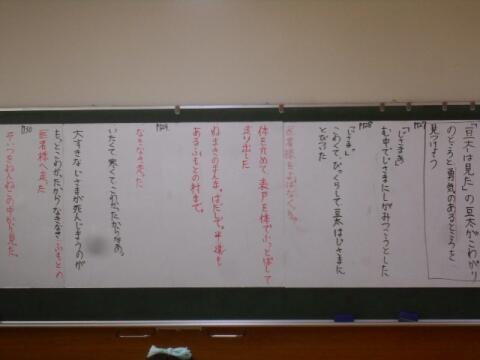 「豆太は見た」の豆太がこわがり
のところと勇気のあるところを
見つけよう
P127
「じさまぁ」
む中でじさまにしがみつこうとした
P128
「じさまっ」
こわくて、びっくらして豆太はじさまに
とびついた
医者様をよばなくっちゃ。
体を丸めて、表戸を体でふっとばして
走り出した
ねまきのまんま。はだしで。半道も
あるふもとの村まで。
P129
なきなき走った。
いたくて、寒くて、こわかったからなあ。
大すきなじさまが死んじまうのが
もっとこわかったから、なきなきふもとの
医者様へ走った
P130
そいつをねんねこの中から見た。